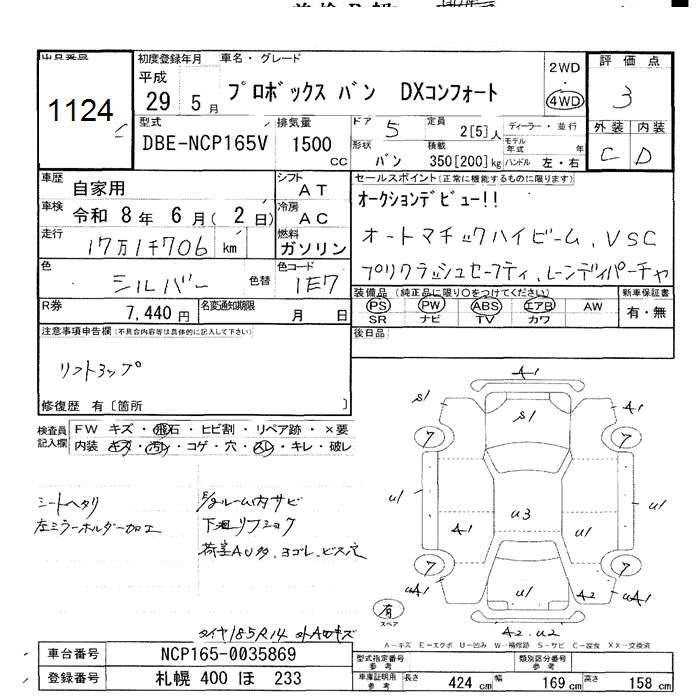 初度登録年月 車名・グレード
平成
29 5月 プロボックス バン DXコンフォート
2WD
4WD
評価点
3
1124
型式 排気量 ドア 定員
DBE-NCP165V 1500 CC 5 2[5]人
ディーラー・並行
外装 内装
C D
形状 積載 モデル年式 年
バン 350[200]kg ハンドル 左・右
車歴 自家用 シフト AT
セールスポイント(正常に機能するものに限ります)
オークションデビュー!!
車検 令和 8年 6月( 2日) 冷房 AC
走行 17万1千706 km 燃料 ガソリン
オートマチックハイビーム、VSC
色 シルバー 色替 色コード 1E7
プリクラッシュセーフティ、レーンディパーチャ
R券 7,440円 名変通知期限 月 日
装備品(純正品に限り○をつけてください) 新車保証書
PS PW ABS エアB AW 有・無
SR ナビ TV カワ
後日品
注意事項申告欄(不具合内容等は具体的に記入して下さい)
リフトアップ
修復歴 有[箇所 ]
検査員記入欄 FW キズ・飛石・ヒビ割・リペア跡・×要
内装 キズ・汚レ・コゲ・穴・スレ・キレ・破レ
シートヘタリ
左ミラーホルダー加工
ルーム内サビ
タイヤ185R14
A1
S1 S1 A1
7 7
U1 U3 U1
A1 U1
7 7
UA1 U1 A2 UA1
A2.U2
有 スペア
A-キズ E-エクボ U-凹み W-補修跡 S-サビ C-腐食 XX-交換済
車台番号 NCP165-0035869
型式指定番号 参考 類別区分番号 参考
登録番号 札幌 400 ほ 233
車庫証明用 参考 長さ 424 cm 幅 169 cm 高さ 158 cm